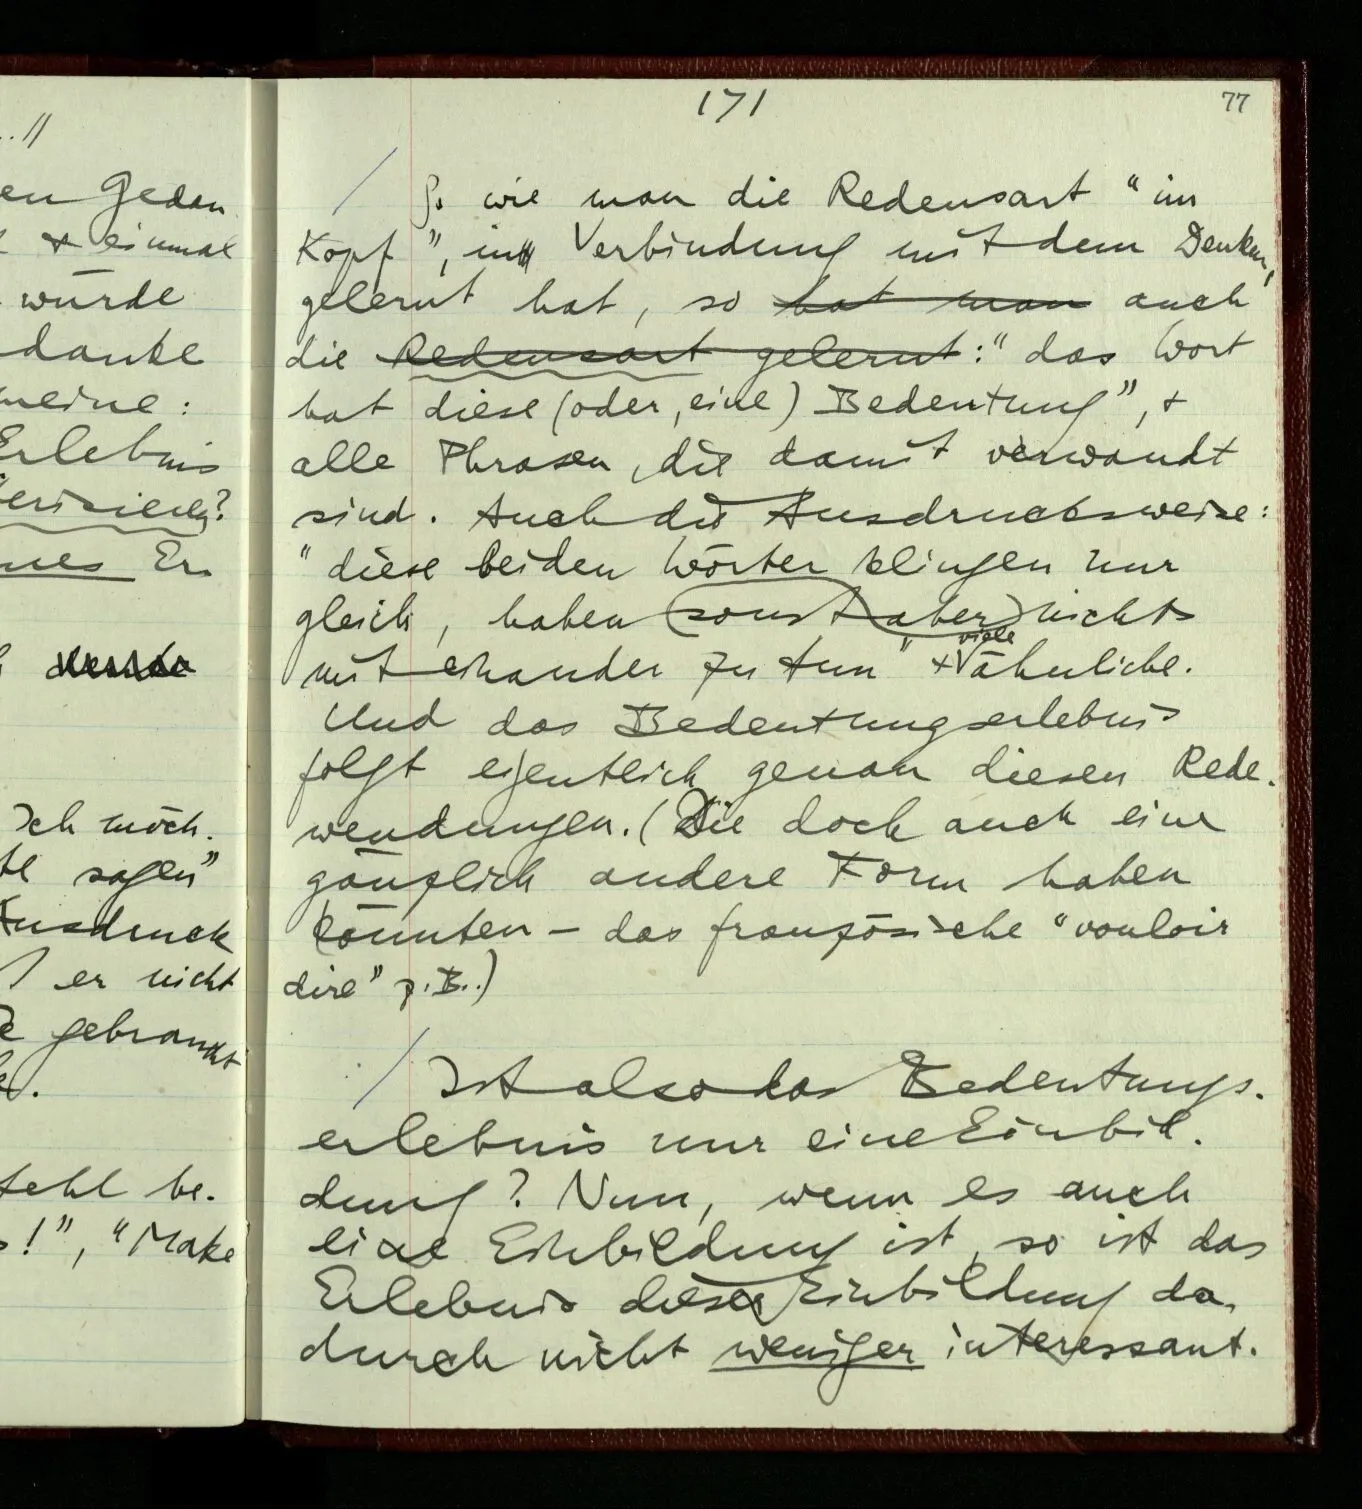 ..//
en Gedan
& einmal
würde
danke
meine:
Erlebnis
erisieren?
nes Er-
Ich möch-
te sagen"
Ausdruck
er nicht
gebraucht
tehl be-
s!", "Make
171
77
So wie man die Redensart "im
Kopf", in Verbindung mit dem Denken,
gelernt hat, so hat man auch
die Redensart gelernt: "das Wort
hat diese (oder, eine) Bedeutung", &
alle Phrasen, die damit verwandt
sind. Auch die Ausdrucksweise:
"diese beiden Wörter klingen nur
gleich, haben sonst aber nichts
mit einander zu tun" & viele ähnliche.
Und das Bedeutungserlebnis
folgt eigentlich genau diesen Rede-
wendungen. (Die doch auch eine
gänzlich andere Form haben
könnten – das französische "vouloir
dire" z.B..)
Ist also das Bedeutungs-
erlebnis nur eine Einbil-
dung? Nun, wenn es auch
eine Einbildung ist, so ist das
Erlebnis dieser Einbildung da-
durch nicht weniger interessant.